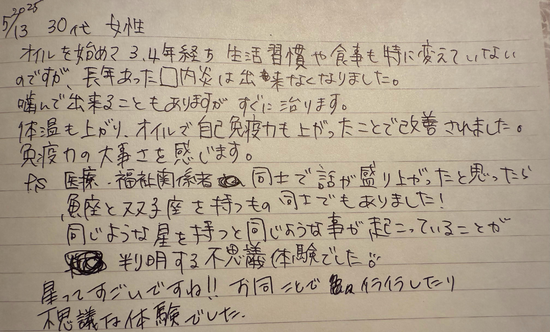 2025
5/13 30代 女性
オイルを始めて3,4年経ち 生活習慣や食事も特に変えていない
のですが、長年あった口内炎は出来なくなりました。
噛んで出来ることもありますが すぐに治ります。
体温も上がり、オイルで自己免疫力も上がったことで改善されました。
免疫力の大事さを感じます。
医療・福祉関係者 同士で話が盛り上がったと思ったら
魚座と双子座を持つもの同士でもありました!
同じような星を持つと同じような事が起こっていることが
判明する不思議体験でした
星ってすごいですね!! お同ことで イライラしたり
不思議な体験でした.